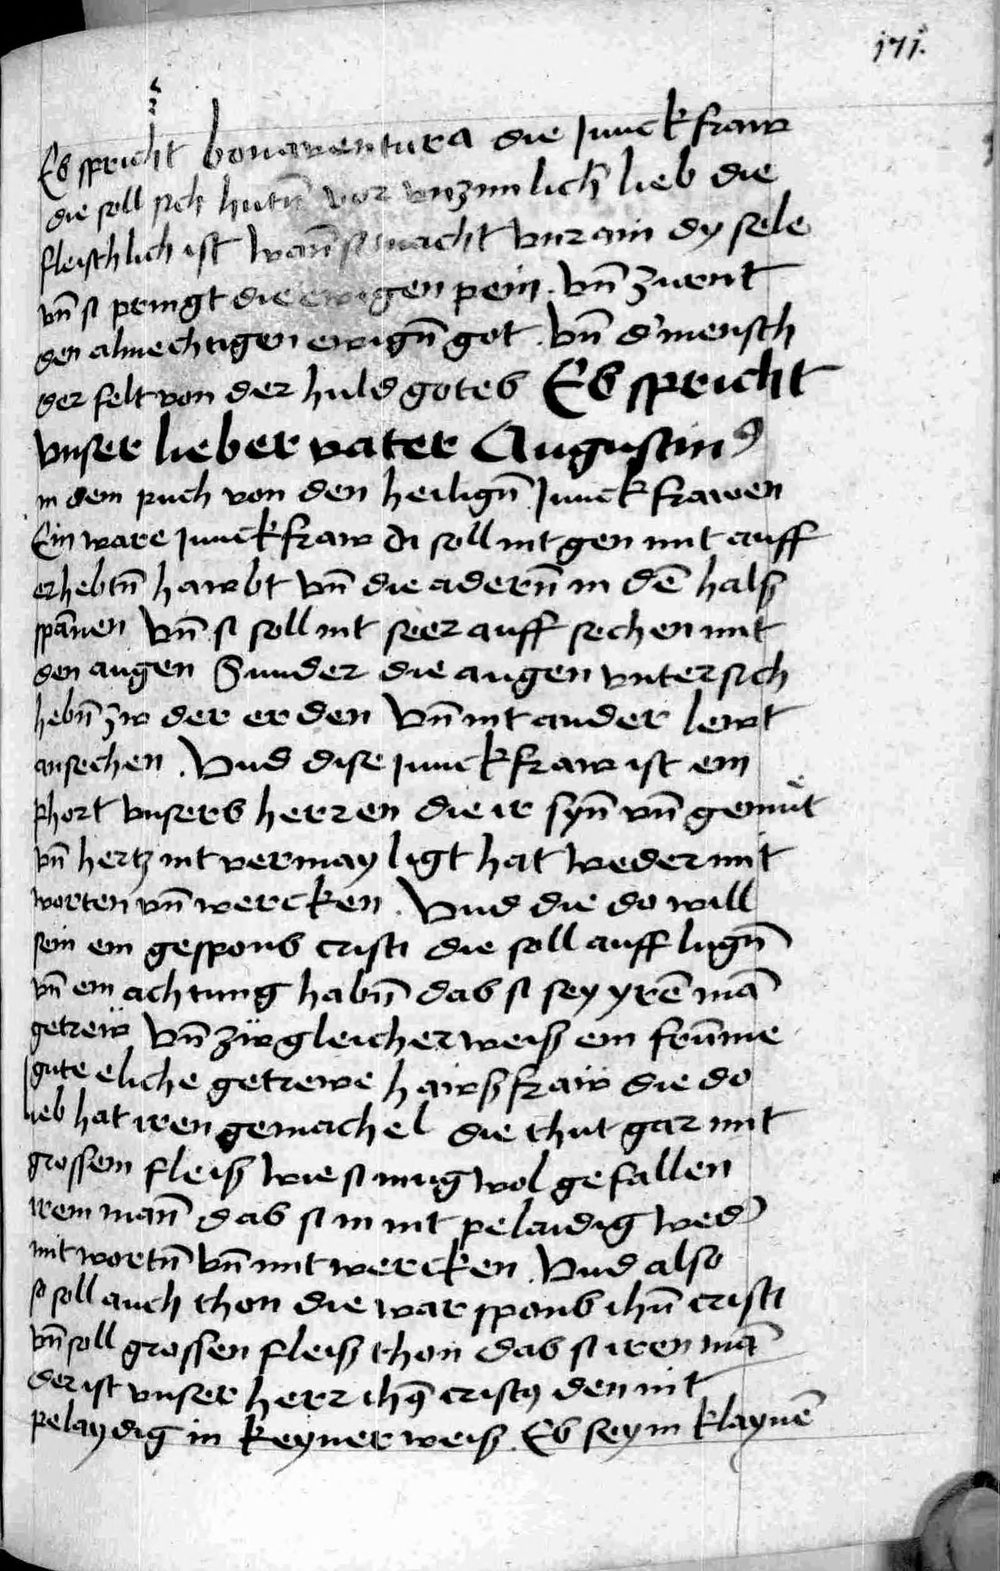 171.
Es spricht bonaventura die Junckfraw
die soll sich hutn̄ vor vnzimlich lieb die
fleischlich ist Wan̄ si macht vnrain dy sele
vn̄ si pringt die ewigen pein. Vn̄ zurent
den almechtigen ewign̄ got. Vn̄ d' mensch
der felt von der huld gotes Es spricht
vnser lieber vater Augustinꝰ
in dem puch von den heilign̄ Junckfrawen
Ein ware Junckfraw di soll nit gen mit auff
erhebtn̄ hawbt Vn̄ die adern̄ in dē halß
spānen Vn̄ si soll nit seer auff sechen mit
den augen Sunder die augen vntersich
hebn̄ zw der erden Vn̄ nit ander lewt
ansechen. Vnd dise Junckfraw ist ein
phort vnsers herren die ir syn̄ vn̄ gemuͤt
vn̄ hertz nit vermayligt hat weder mit
worten vn̄ wercken. Vnd die do will
sein ein gespons cristi die soll auff lugn̄
vn̄ ein achtung habn̄ das si sey yrē mā
getrew Vn̄ zw gleicher weiß ein frūme
gute eliche getrewe hawsfraw die do
lieb hat iren gemachel die thut gar mit
grossem fleiß wie si mug wol gefallen
irem man̄ das si in nit pelaidig wed'
mit wortn̄ vn̄ mit wercken. Vnd also
so soll auch thon die war spons ihū cristi
vn̄ soll grossen fleiß thon das si iren mā
der ist vnser herr ihs̄ cristꝰ den nit
pelaydig in keyner weiß. Es sey in klaynē